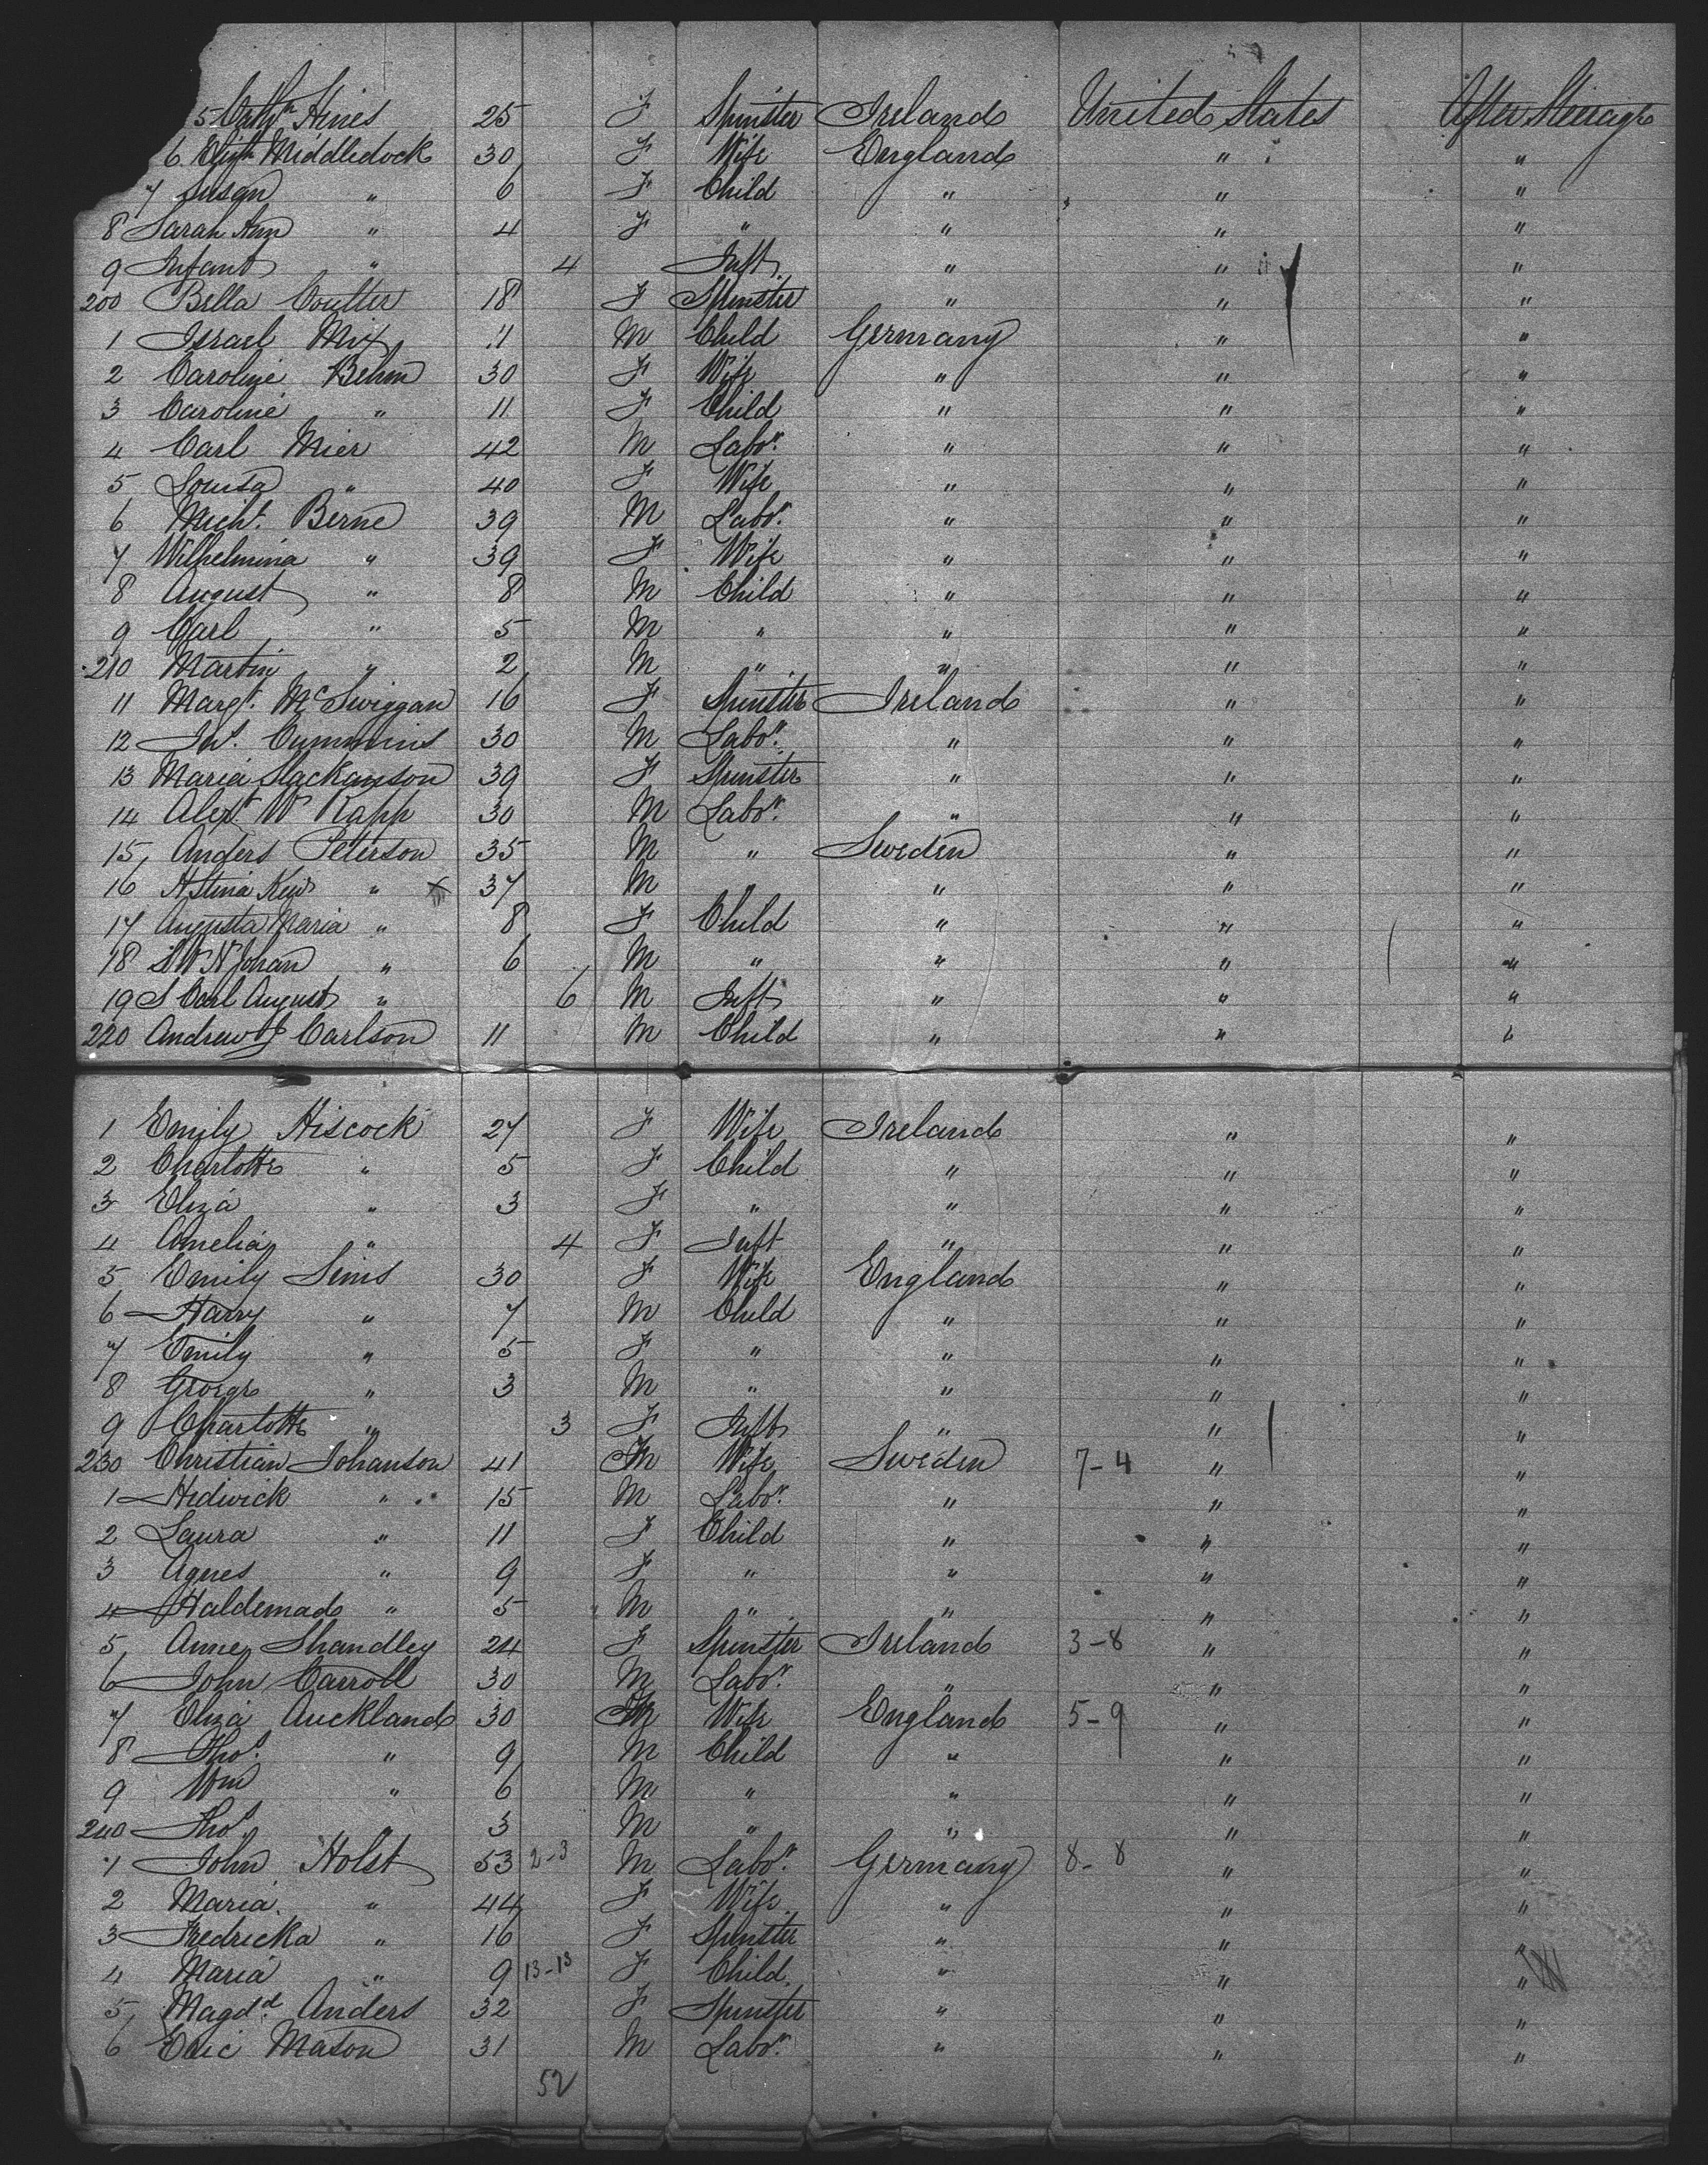 5 Cathn Hines 25 F Spinster Ireland United States After Steerage
6 Elizth Middledock 30 F Wife England " "
7 Susan " 6 F Child " " "
8 Sarah Ann " 4 F " " " "
9 Infant " 4 Inft " " "
200 Bella Coulter 18 F Spinster " " "
1 Israel Mix 11 M Child Germany " "
2 Caroline Behm 30 F Wife " " "
3 Caroline " 11 F Child " " "
4 Carl Mier 42 M Labor. " " "
5 Louisa " 40 F Wife " " "
6 Michl. Berne 39 M Labor. " " "
7 Wilhelmina " 39 F Wife " " "
8 August " 8 M Child " " "
9 Carl " 5 M " " " "
210 Martin " 2 M " " " "
11 Margt. McSwiggan 16 F Spinster Ireland " "
12 Jno. Cummins 30 M Labor. " " "
13 Maria Slackanson 39 F Spinster " " "
14 Alexr W Rapp 30 M Labor. " " "
15 Anders Peterson 35 M " Sweden " "
16 " x 37 M " " " "
17 Augusta Maria " 8 F Child " " "
18 Johan " 6 M " " " "
19 S Carl August " 6 M Inft " " "
220 Andrew J Carlson 11 M Child " " "
1 Emily Hiscock 27 F Wife Ireland " "
2 Charlotte " 5 F Child " " "
3 Eliza " 3 F " " " "
4 Amelia " 4 F Inft " " "
5 Emily Sims 30 F Wife England " "
6 Harry " 7 M Child " " "
7 Emily " 5 F " " " "
8 George " 3 M " " " "
9 Charlotte " 3 F Inft " " "
230 Christian Johanson 41 Wife Sweden 7-4 " "
1 Hedwick " 15 M Labor. " " "
2 Laura " 11 F Child " " "
3 Agnes " 9 F " " " "
4 Haldemad " 5 M " " " "
5 Anne Shandley 24 F Spinster Ireland 3-8 " "
6 John Carroll 30 M Labor. " " "
7 Eliza Auckland 30 Wife England 5-9 " "
8 Thos. " 9 M Child " " "
9 Wm " 6 M " " " "
240 Thos. " 3 M " " " "
1 John Holst 53 2-3 M Labor. Germany 8-8 " "
2 Maria " 44 F Wife " " "
3 Fredricka " 16 F Spinster " " "
4 Maria " 9 13-13 F Child " " "
5 Magdd. Anders 32 F Spinster " " "
6 Eric Mason 31 M Labor. " " "
52